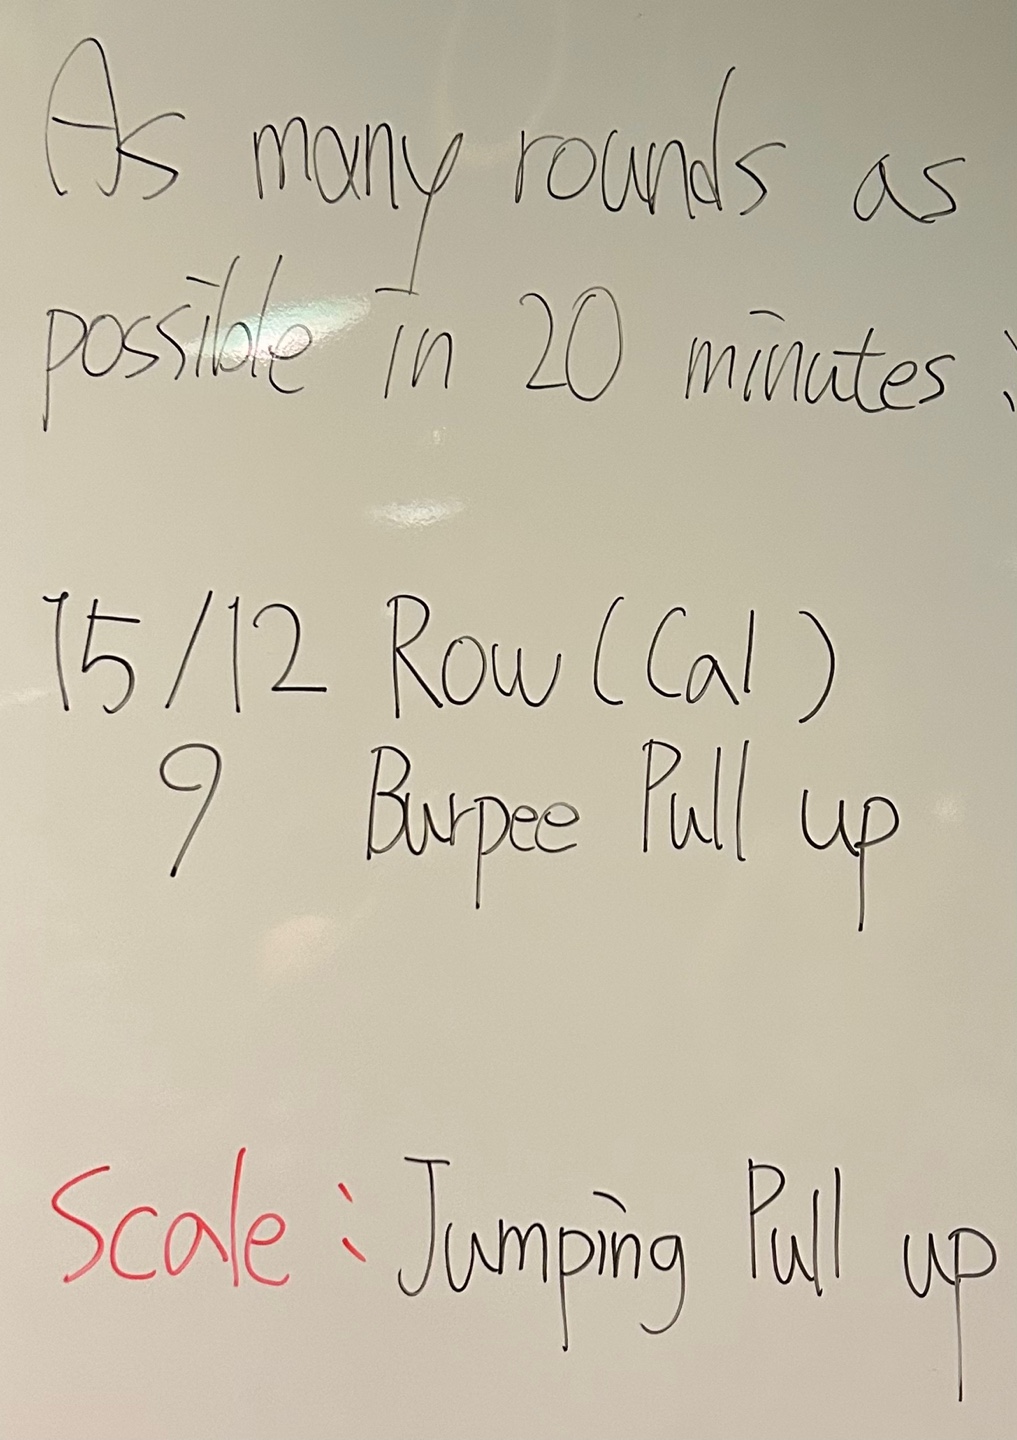 As many rounds as
possible in 20 minutes:
15/12 Row (Cal)
9 Burpee Pull up
Scale: Jumping Pull up